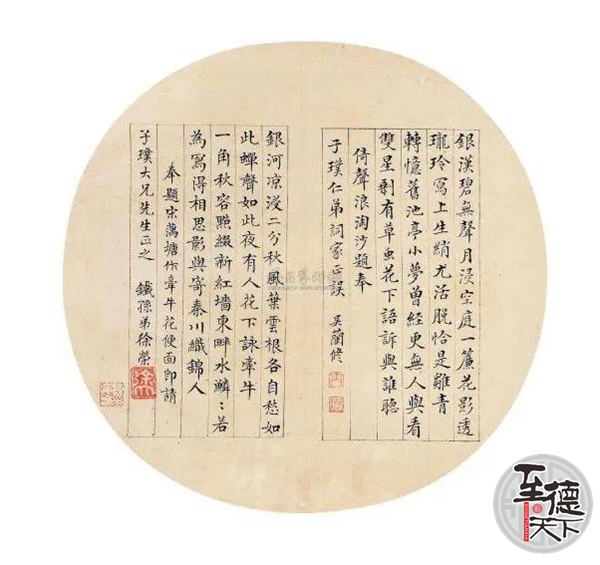 銀漢碧無聲月浸空庭一簾花影透
瓏玲寫上生綃尤活脫恰是雛青
轉憶舊池亭小夢曾經更無人與看
雙星剩有草虫花下語訴與誰聽
倚聲浪淘沙題奉
子璞仁弟詞家正誤 吳蘭修
銀河凉浸二分秋風葉雲根各自愁如
此蟬聲如此夜有人花下詠牽牛
一角秋容點綴新紅墻東畔水鱗〻若
為寫得相思影與寄秦川織錦人
奉題宋藕塘作牽牛花便面即請
子璞大兄先生正之 鐵孫弟徐榮
徐
至德天下